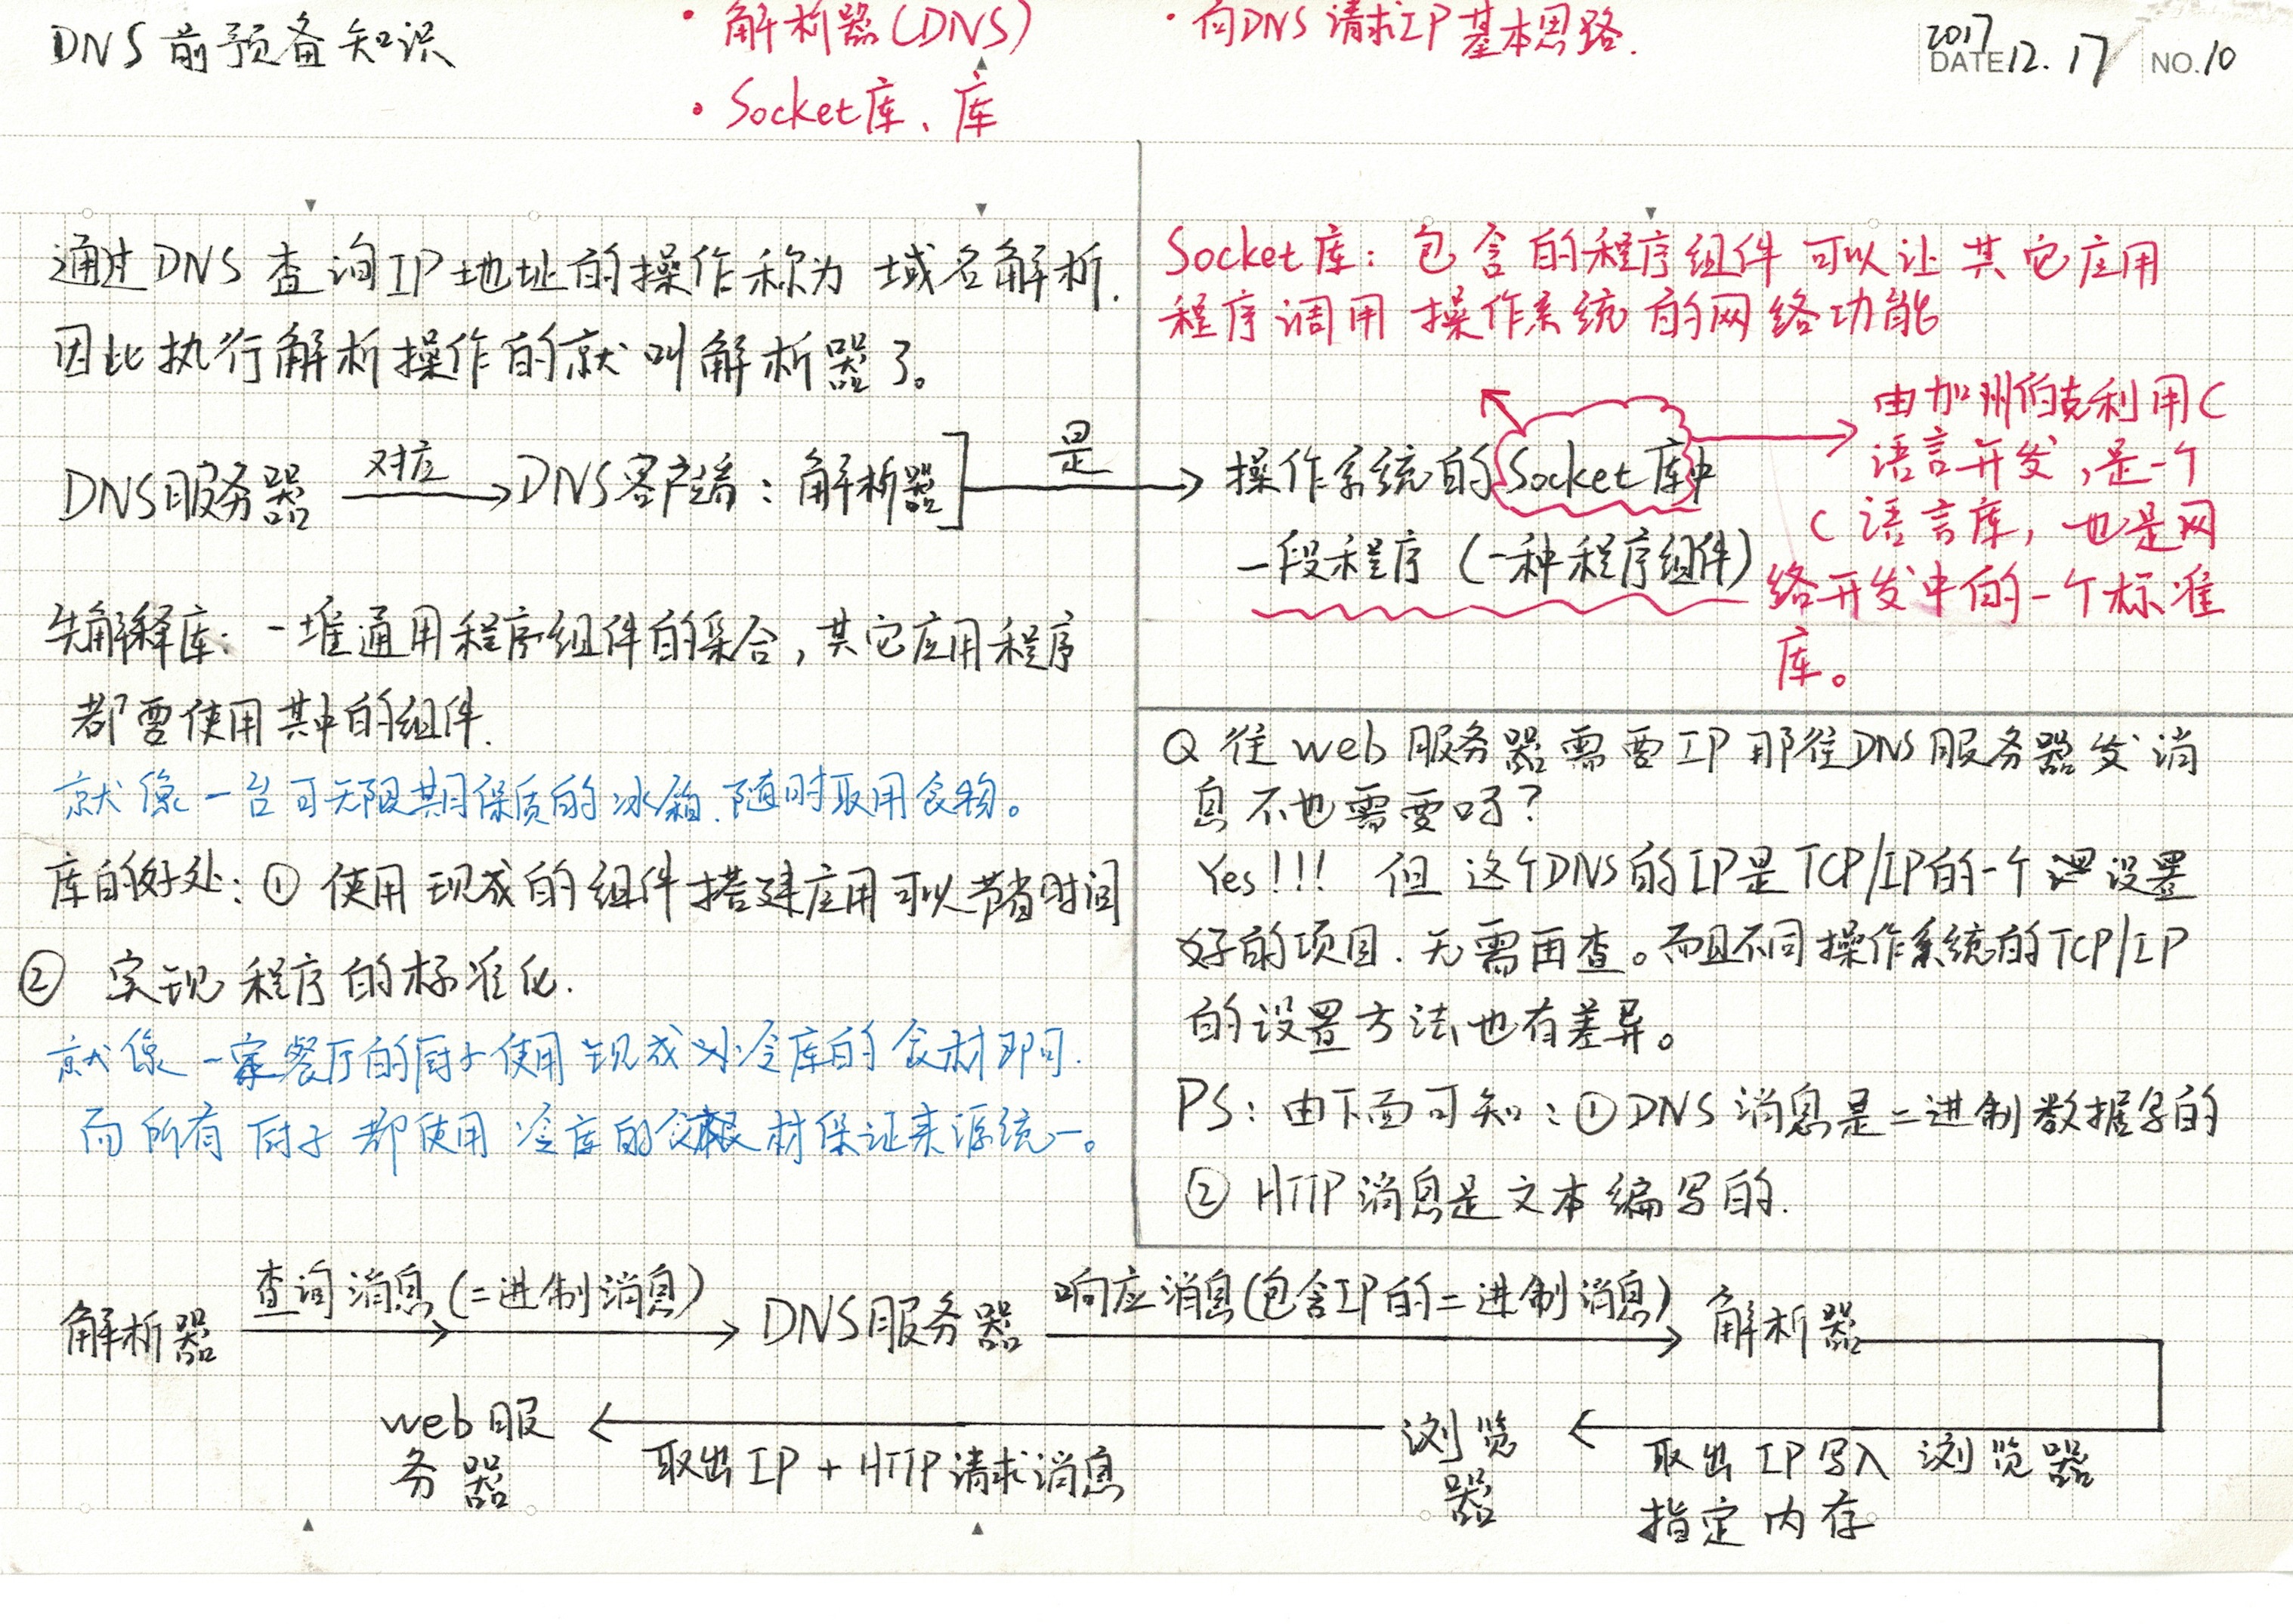 DNS 前预备知识
• 解析器(DNS)
• Socket库、库
• 向DNS 请求IP 基本思路.
2017
DATE 12.17
NO.10
通过DNS 查询IP地址的操作称为 域名解析.
因此执行解析操作的就叫解析器了。
DNS服务器 对应 DNS客户端:解析器] 是
先解释库: 一堆通用程序组件的集合,其它应用程序
都要使用其中的组件.
就像一台可无限期保质的冰箱.随时取用食物。
库的好处:① 使用现成的组件搭建应用可以节省时间
② 实现程序的标准化.
就像一家餐厅的厨子使用现成冰冷库的食材即可.
而所有厨子都使用冷库的食材保证来源统一。
Socket库:包含的程序组件可以让其它应用
程序调用操作系统的网络功能
操作系统的Socket库中
一段程序(一种程序组件)
由加州伯克利用C
语言开发,是一个
C语言库,也是网
络开发中的一个标准
库。
Q 往web服务器需要IP那往DNS服务器发消
息不也需要吗?
Yes!!! 但这个DNS的IP是TCP/IP的一个设置
好的项目.无需再查。而且不同操作系统的TCP/IP
的设置方法也有差异。
PS:由下面可知:①DNS消息是二进制数据写的
② HTTP消息是文本编写的.
查询消息(二进制消息)
响应消息(包含IP的二进制消息)
解析器 DNS服务器 解析器
web服
务器
取出IP + HTTP请求消息
浏览
器
取出IP写入浏览器
指定内存